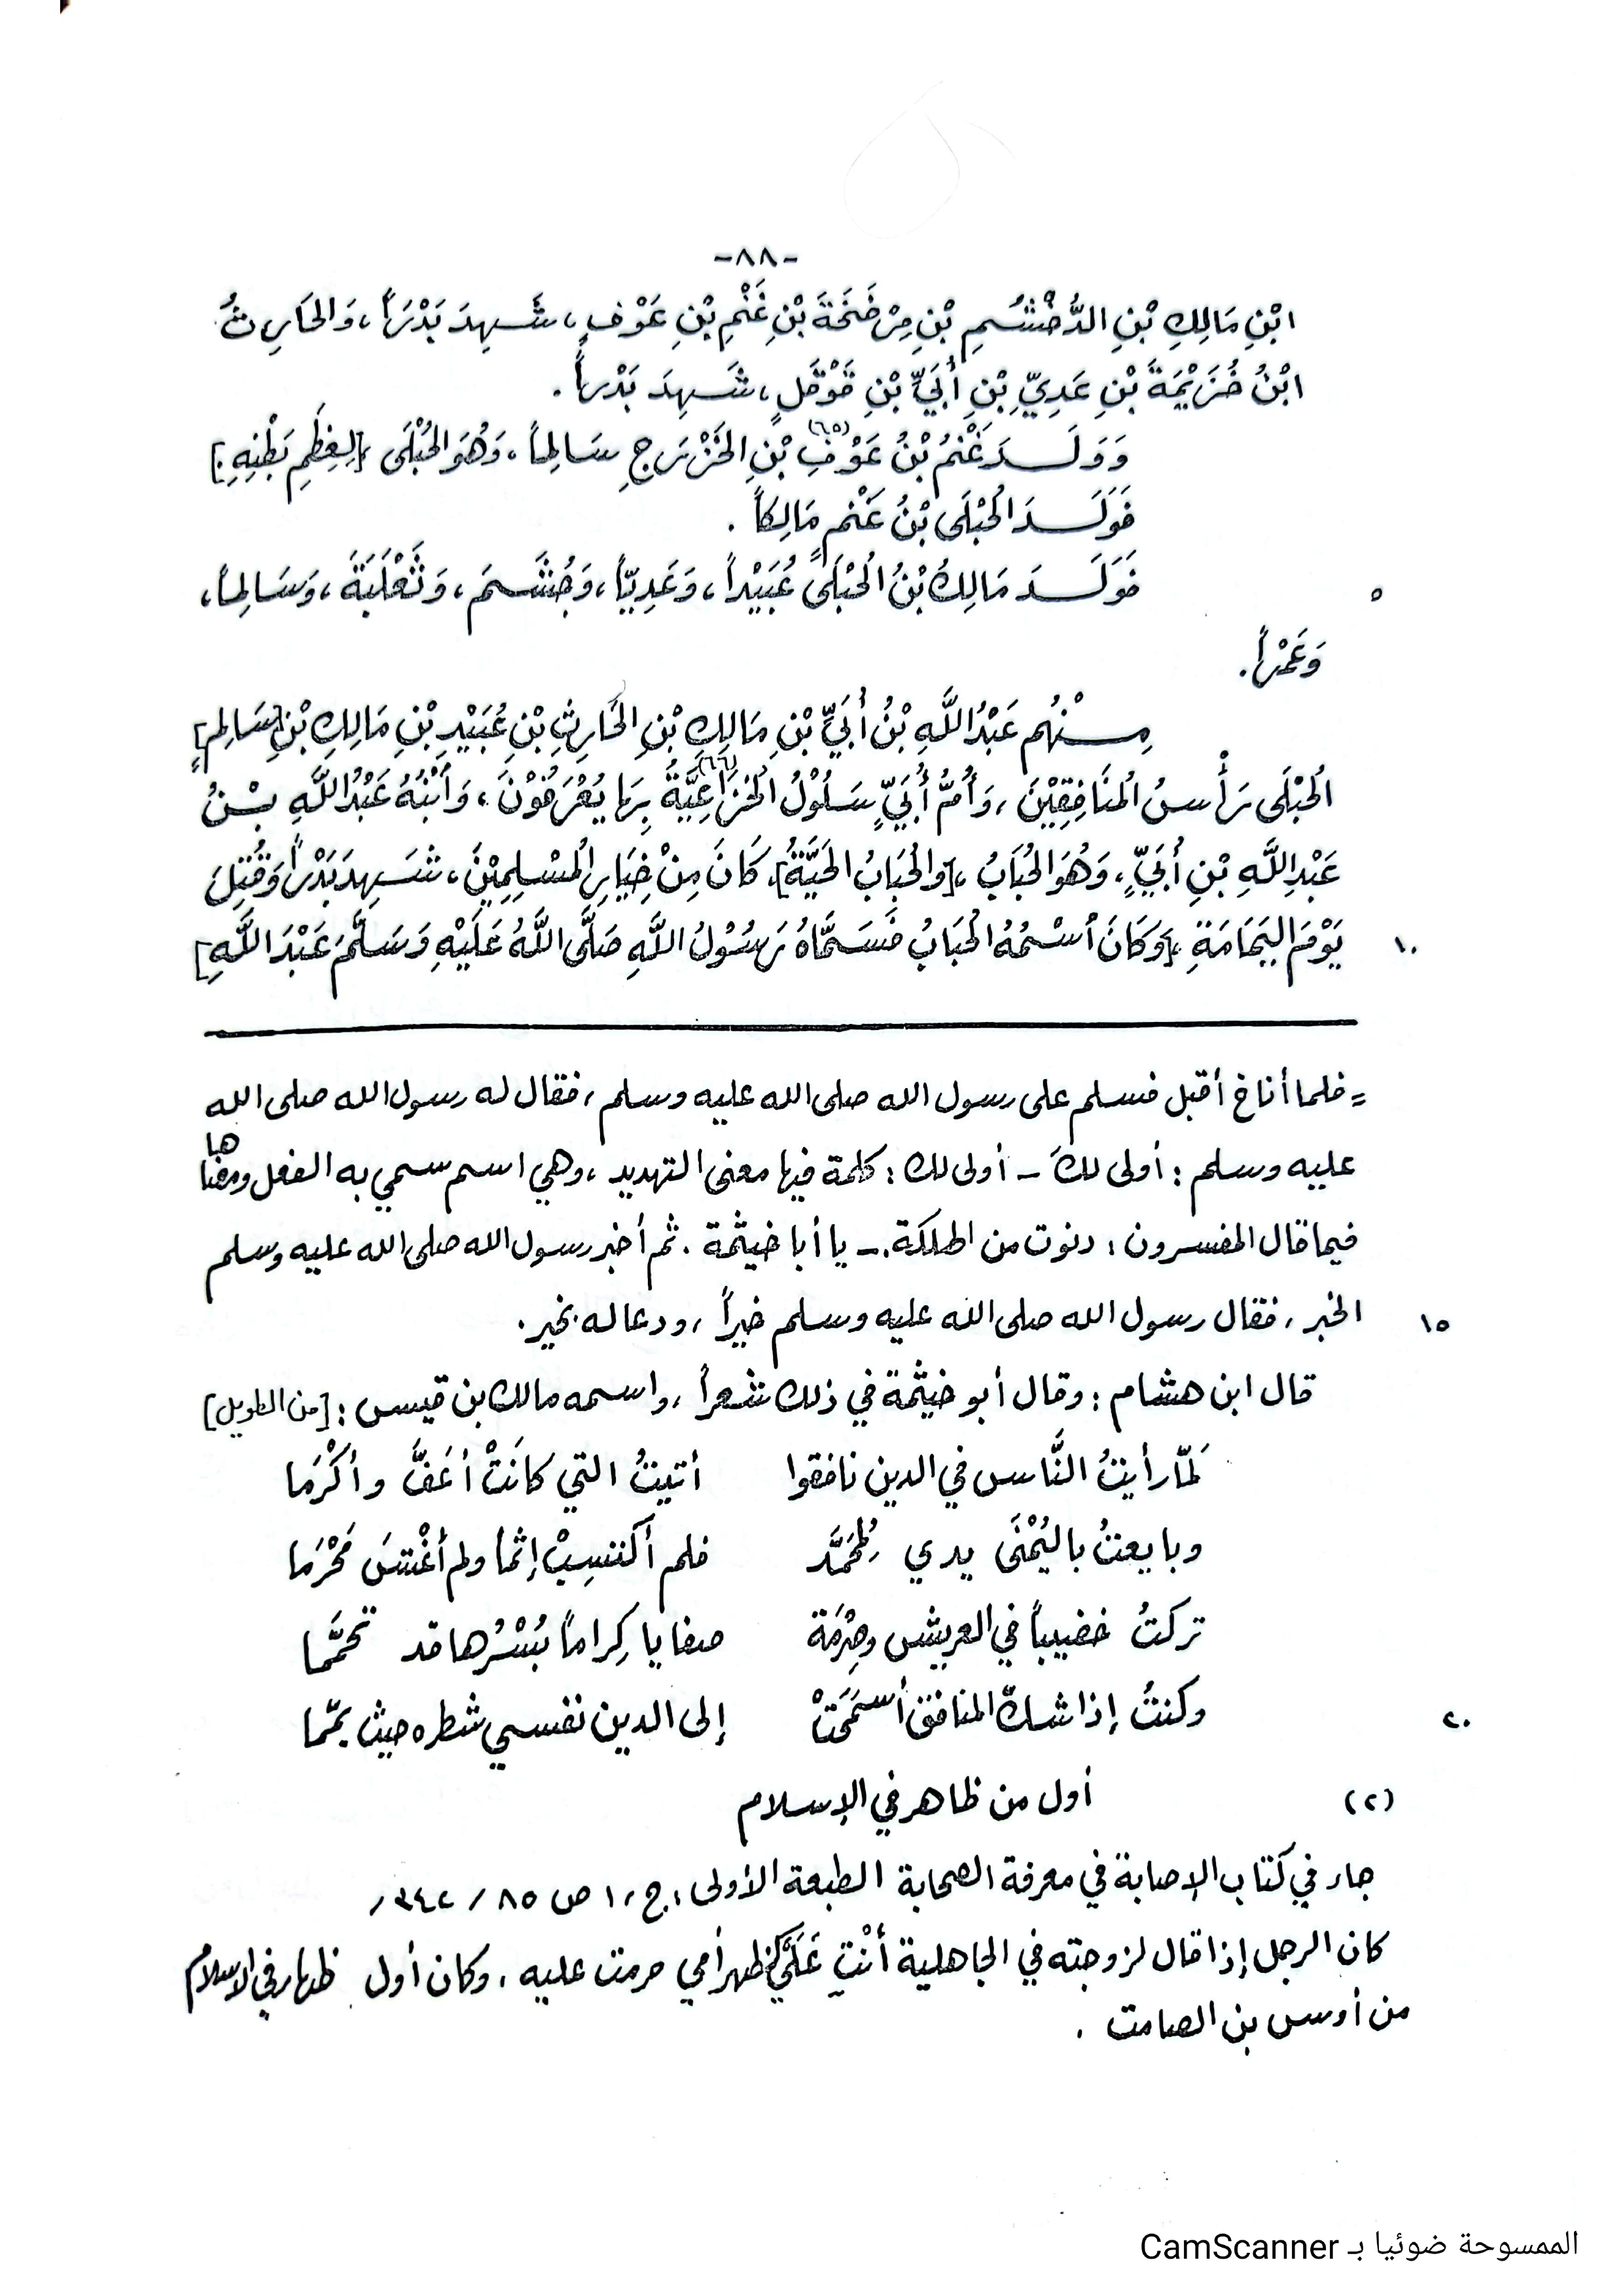 -٨٨-
ابْنِ مَالِكِ بْنِ الدُّخْشُمِ بْنِ مِرْضَخَةَ بْنِ غَنْمِ بْنِ عَوْفٍ، شَهِدَ بَدْرَاً، وَالحَارِثُ
ابْنُ خُزَيْمَةَ بْنِ عَدِيِّ بْنِ أُبَيِّ بْنِ قَوْقَلٍ، شَهِدَ بَدْراً.
وَوَلَدَ غَنْمُ بْنُ عَوْفِ (٦٥) بْنِ الخَزْرَجِ سَالِماً، وَهُوَ الحُبْلَى [لِعِظَمِ بَطْنِهِ]
فَوَلَدَ الحُبْلَى بْنُ غَنْمٍ مَالِكاً.
٥ فَوَلَدَ مَالِكُ بْنُ الحُبْلَى عُبَيْداً، وَعَدِيّاً، وَجُشَمَ، وَثَعْلَبَةَ، وَسَالِماً،
وَعَمْراً.
مِنْهُم عَبْدُ اللَّهِ بْنُ أُبَيِّ بْنِ مَالِكِ بْنِ الحَارِثِ بْنِ عُبَيْدِ بْنِ مَالِكِ بْنِ [سَالِمٍ]
الحُبْلَى رَأْسُ المُنَافِقِيْنَ، وَأُمُّ أُبَيٍّ سَلُوْلُ الخُزَاعِيَّةُ (٦٦) بِهَا يُعْرَفُوْنَ، وَابْنُهُ عَبْدُ اللَّهِ بْنُ
عَبْدِ اللَّهِ بْنِ أُبَيٍّ، وَهُوَ الحُبَابُ، [وَالحُبَابُ الحَيَّةُ]، كَانَ مِنْ خِيَارِ المُسْلِمِيْنَ، شَهِدَ بَدْراً وَقُتِلَ
١٠ يَوْمَ اليَمَامَةِ، [وَكَانَ اسْمُهُ الحُبَابُ فَسَمَّاهُ رَسُوْلُ اللَّهِ صَلَّى اللَّهُ عَلَيْهِ وَسَلَّمَ عَبْدَ اللَّهِ]
= فلما أناخ أقبل فسلم على رسول الله صلى الله عليه وسلم، فقال له رسول الله صلى الله
عليه وسلم: أولى لكَ - أولى لك: كلمة فيها معنى التهديد، وهي اسم سمي به الفعل ومعناها
فيما قال المفسرون: دنوت من الهلكة. - يا أبا خيثمة. ثم أخبر رسول الله صلى الله عليه وسلم
١٥ الخبر، فقال رسول الله صلى الله عليه وسلم خيراً، ودعا له بخير.
قال ابن هشام: وقال أبو خيثمة في ذلك شعراً، واسمه مالك بن قيس: [من الطويل]
لَمّا رأيتُ النَّاس في الدين نافقوا أتيتُ التي كانَتْ أعَفَّ وأكْرَما
وبايعتُ باليُمْنَى يدي لِمُحَمَّد فلم أكتسِبْ إثماً ولم أغْشَ مَحْرَما
تركتُ خضيباً في العريش وصِرْمَة صفايا كِراماً بُسْرُها قد تحمَّما
٢٠ وكنتُ إذا شكّ المنافق أسمَحَتْ إلى الدين نفسي شطره حيث يمّما
(٢) أول من ظاهر في الإسلام
جاء في كتاب الإصابة في معرفة الصحابة الطبعة الأولى، ج ١، ص ٨٥ / ٣٤٢،
كان الرجل إذا قال لزوجته في الجاهلية أنْتِ عَلَيَّ كظهر أمي حرمت عليه، وكان أول ظهار في الإسلام
من أوس بن الصامت.
الممسوحة ضوئيا بـ CamScanner